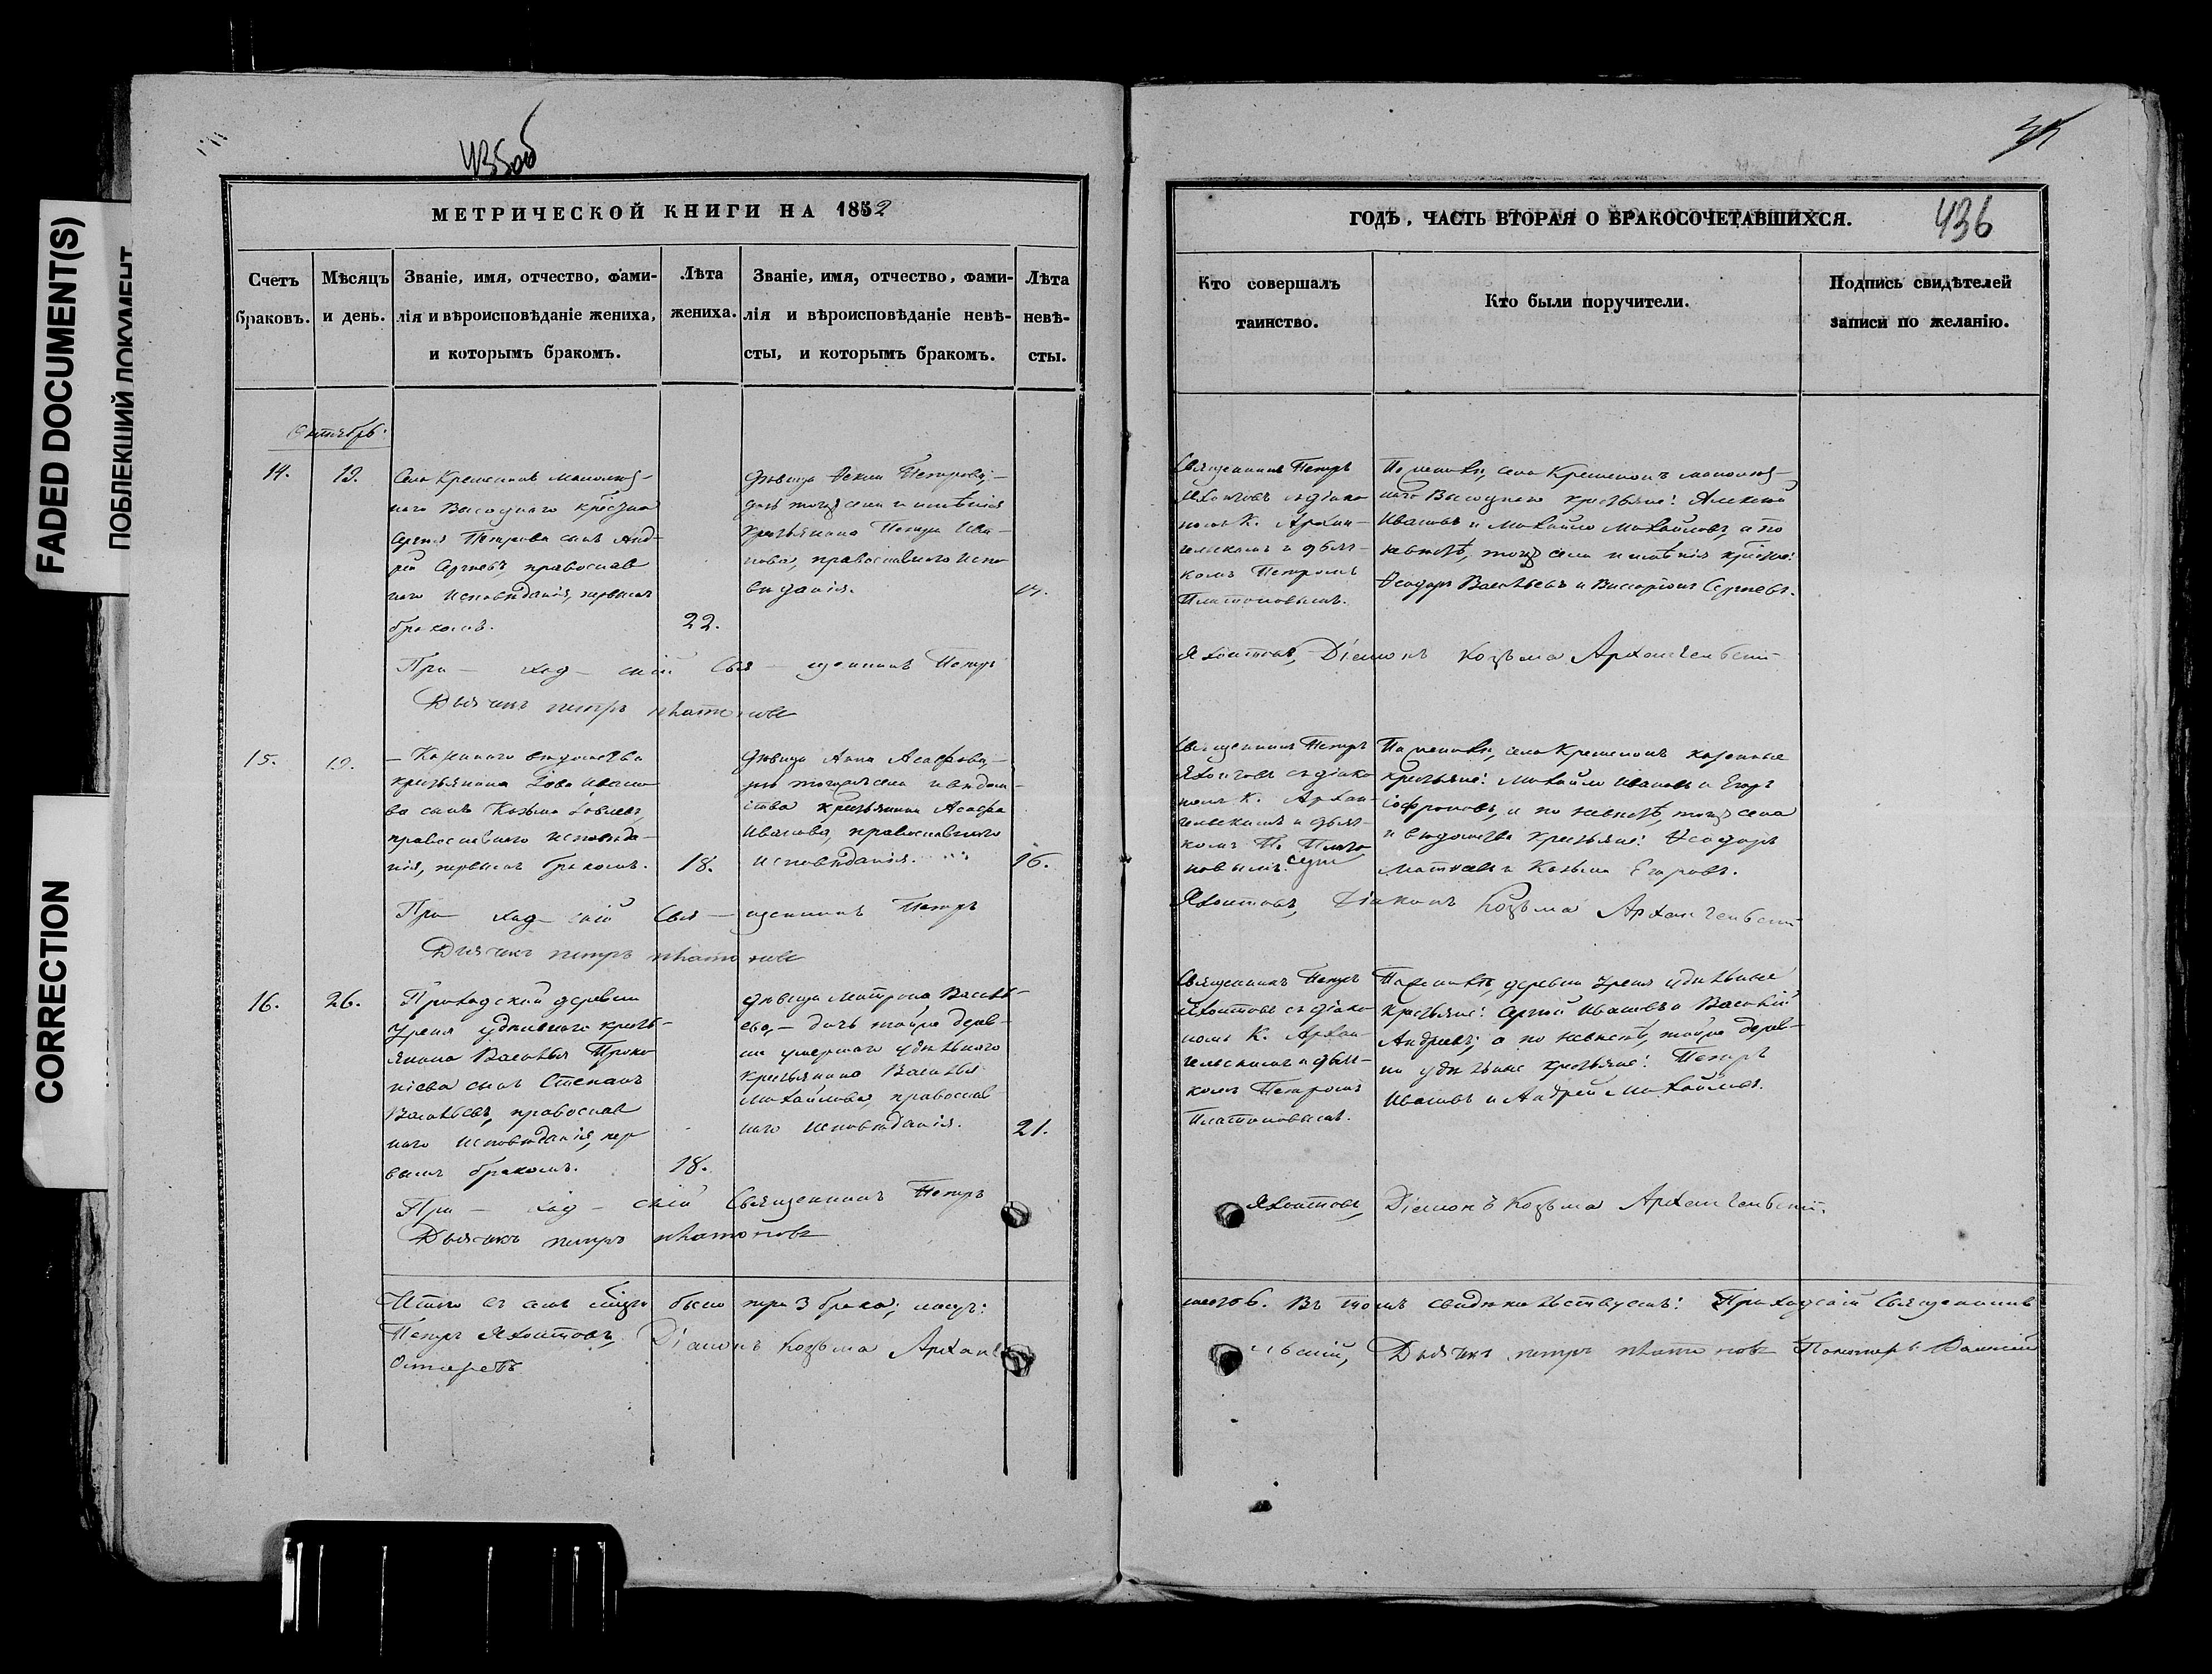 FADED DOCUMENT(S)
ПОБЛЕКШИЙ ДОКУМЕНТ
CORRECTION
435об
МЕТРИЧЕСКОЙ КНИГИ НА 1852
Счетъ браковъ.
Мѣсяцъ и день.
Званіе, имя, отчество, фами-
лія и вѣроисповѣданіе жениха,
и которымъ бракомъ.
Лѣта
жениха.
Званіе, имя, отчество, фами-
лія и вѣроисповѣданіе невѣ-
сты, и которымъ бракомъ.
Лѣта
невѣ-
сты.
Октябрь.
14.
19.
Села Кременокъ
Сергія Петрова сынъ Анд-
рей Сергѣевъ, православ
наго исповѣданія, первымъ
бракомъ.
22.
Петрова,
дочь тогожъ села и имѣнія
крестьянина Петра Ива-
нова, православнаго испо
вѣданія.
При — ход — скій Свя — щенникъ Петръ
Дьячекъ петръ платоновъ
15.
19.
— Казеннаго вѣдомства
крестьянина Іова Ивано
ва сынъ Козьма Іовлевъ,
православнаго исповѣда-
нія, первымъ бракомъ.
18.
дѣвица Анна Асафова, —
дочь тогожъ села и вѣдом-
ства крестьянина Асафа
Иванова, православнаго
исповѣданія.
16.
При — ход — скій Свя — щенникъ Петръ
Дьячекъ петръ платоновъ
16.
26.
Приходской деревни
Уреня удѣльнаго кресть-
янина Василья Проко
піева сынъ Степанъ
Васильевъ, православ
наго исповѣданія, пер
вымъ бракомъ.
18.
дѣвица Матрона Василь-
ева, — дочь тойже дерев-
ни умершаго удѣльнаго
крестьянина Василья
Михайлова, православ
наго исповѣданія.
21.
При — ход — скій Священникъ Петръ
Дьячекъ петръ платоновъ
Итого въ семъ было три 3 брака;
Петръ Яхонтовъ, Діаконъ Козьма Арханг
ГОДЪ, ЧАСТЬ ВТОРАЯ О БРАКОСОЧЕТАВШИХСЯ.
436
Кто совершалъ
таинство.
Кто были поручители.
Подпись свидѣтелей
записи по желанію.
Священникъ Петръ
Яхонтовъ съ діако
номъ К. Архан-
гельскимъ и дьяч-
комъ Петромъ
Платоновымъ.
По женихѣ, села Кременокъ
крестьяне: Алексѣй
Ивановъ и Михайло Михайловъ, а по
невѣстѣ, тогожъ села и имѣнія
Ѳеодоръ Васильевъ и Виссаріонъ Сергѣевъ.
Яхонтовъ, Діаконъ Козьма Архангельскій
Священникъ Петръ
Яхонтовъ съ діако
номъ К. Архан-
гельскимъ и дьяч-
комъ П. Плато
новымъ.
По женихѣ, села Кременокъ казенные
крестьяне: Михайло Ивановъ и Егоръ
Софроновъ, а по невѣстѣ, тогожъ села
и вѣдомства крестьяне: Ѳеодоръ
Матвѣевъ и Козьма Егоровъ.
Яхонтовъ, Діаконъ Козьма Архангельскій
Священникъ Петръ
Яхонтовъ съ діако
номъ К. Архан-
гельскимъ и дьяч-
комъ Петромъ
Платоновымъ.
По женихѣ, деревни Уреня удѣльные
крестьяне: Сергѣй Ивановъ и Василій
Андреевъ; а по невѣстѣ, тойже дерев-
ни удѣльные крестьяне: Петръ
Ивановъ и Андрей Михайловъ.
Яхонтовъ, Діаконъ Козьма Архангельскій.
Въ томъ свидѣтельствуемъ: Приходскій Священникъ
льскій, Дьячекъ петръ платоновъ Пономарь